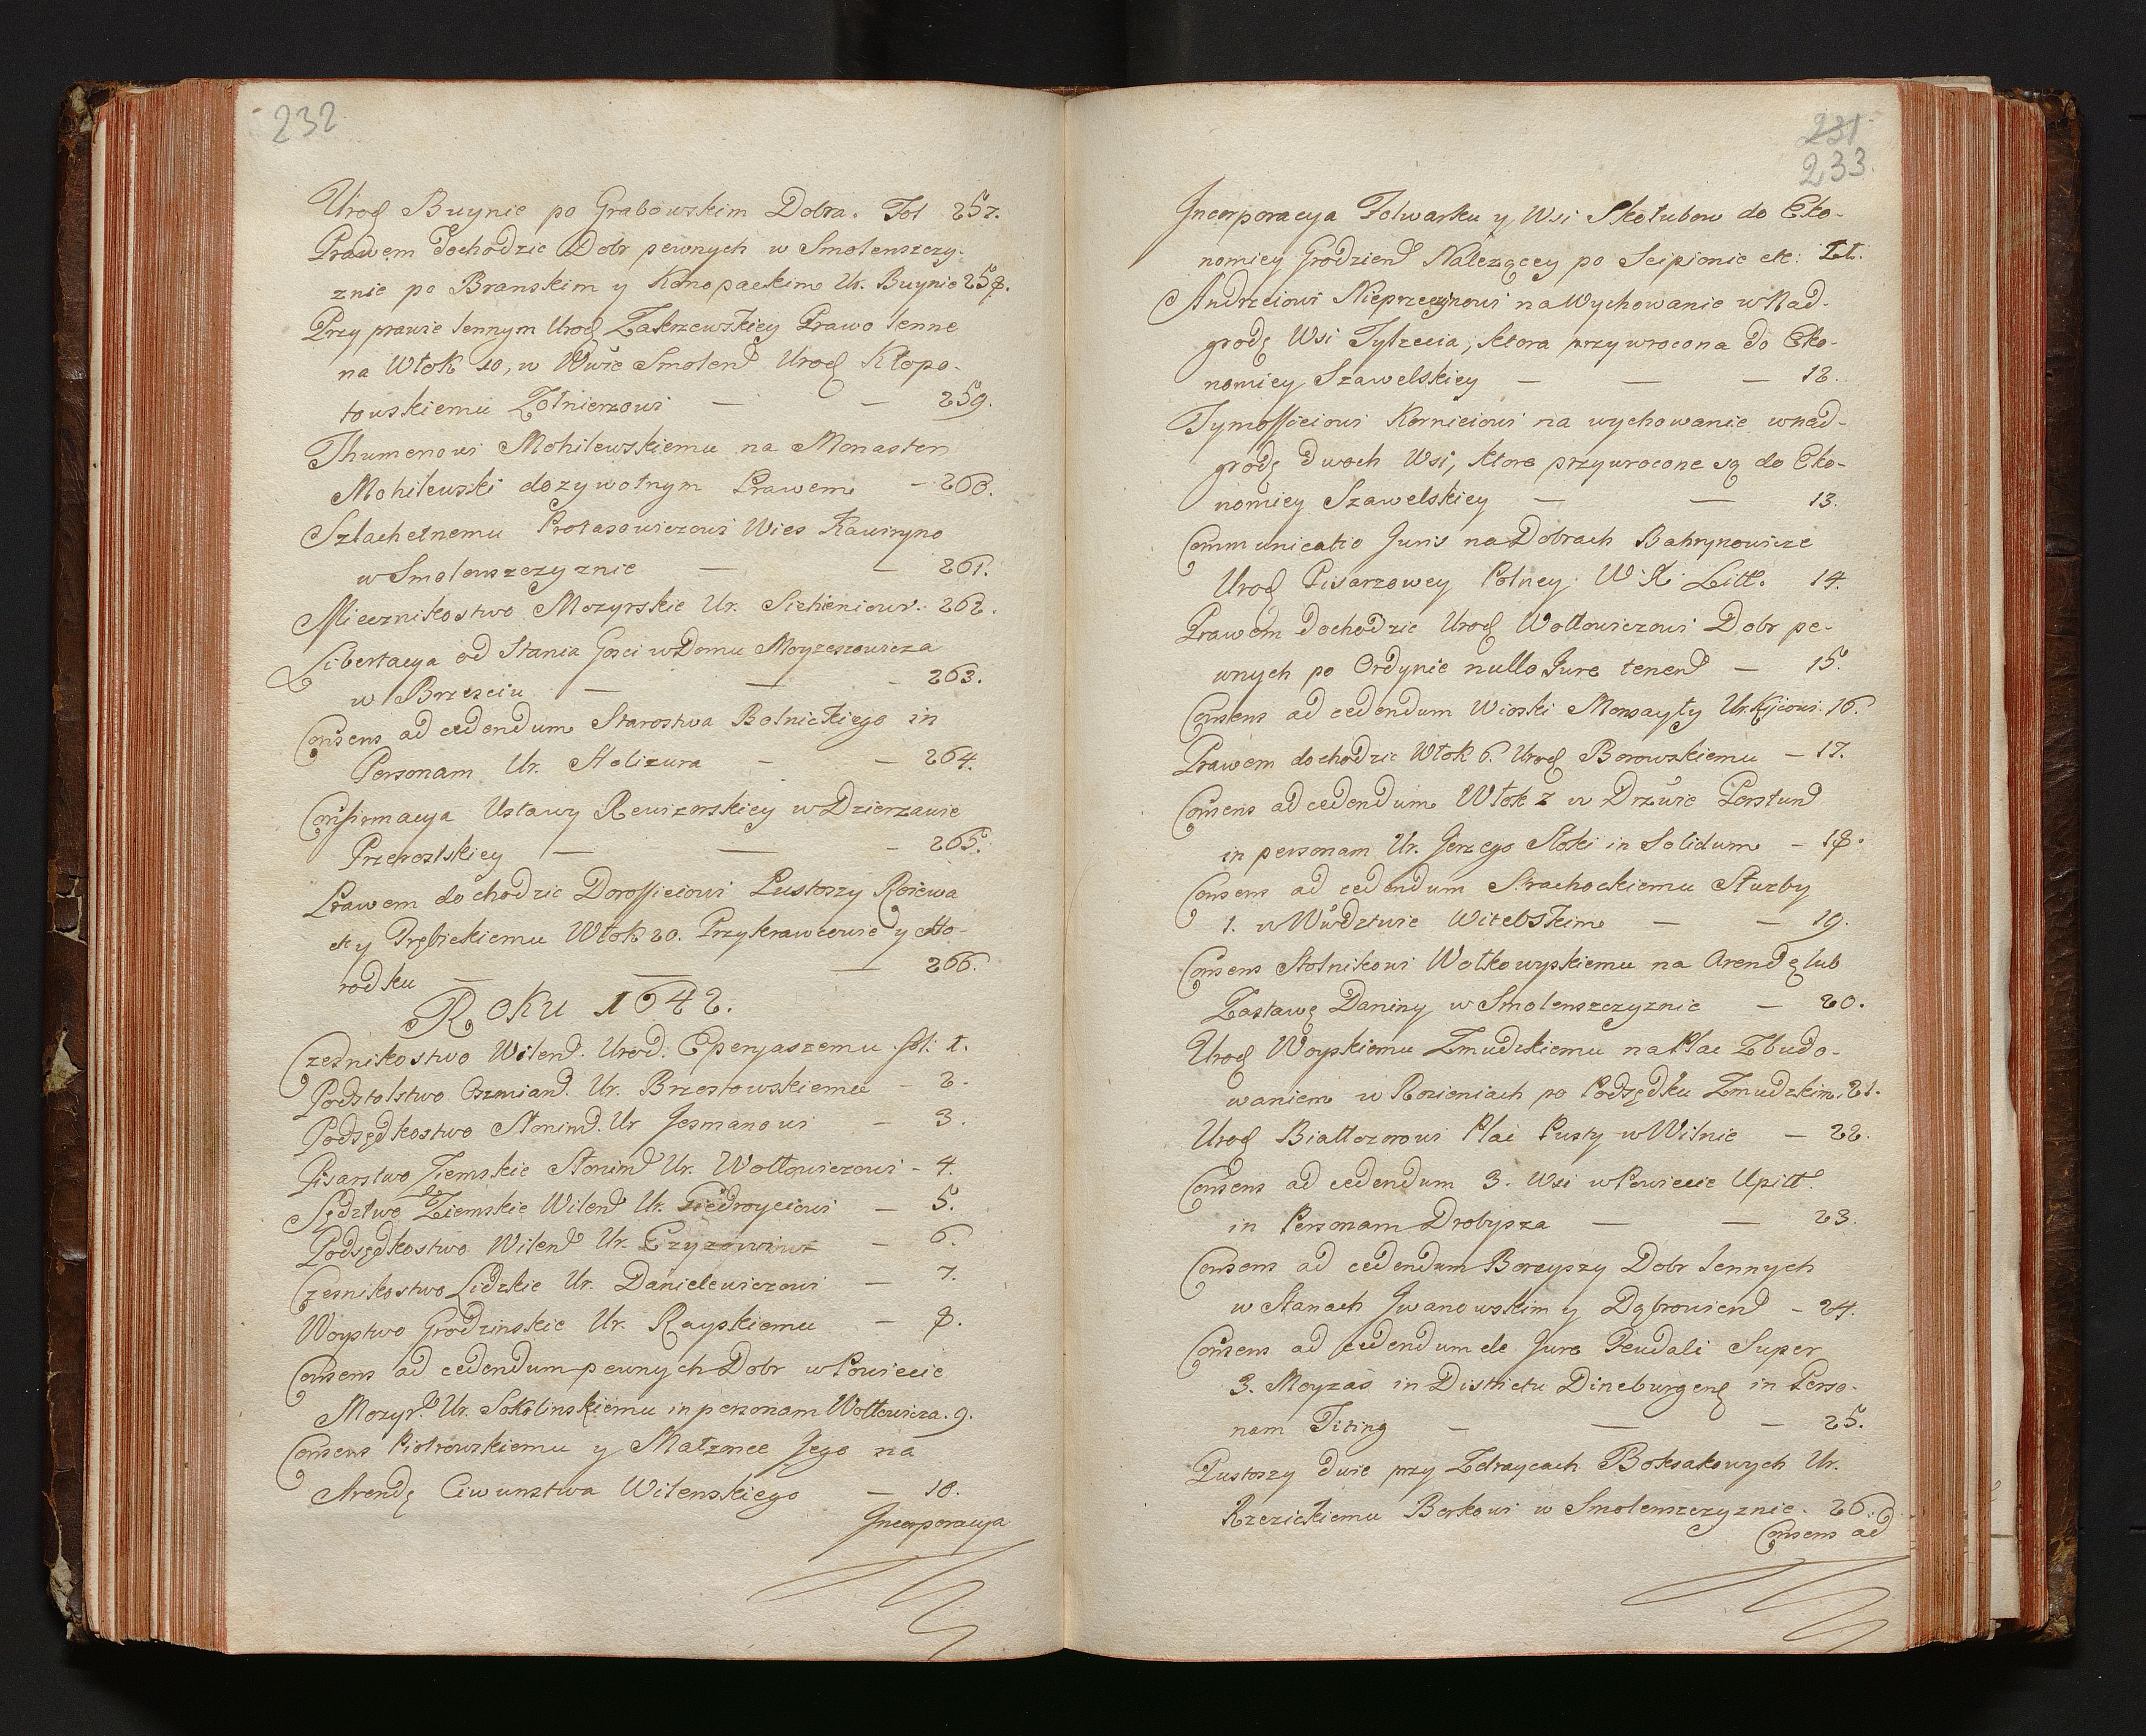 232
Urod Buynie po Grabowskim Dobra. Fol 257.
Prawem dochodzic Dobr pewnych w Smolenszczy-
znie po Branskim y Konopackim Ur. Buynie 258.
Przy prawie lennym Urod Zakrzewskiey Prawo lenne
na Włok 10, w Wwie Smolen Urod Kłopo-
towskiemu Żołnierzowi — — 259.
Ihumenowi Mohilewskiemu na Monaster
Mohilewski dozywotnym Prawem — 260.
Szlachetnemu Protasowiczowi Wies Kawiryno
w Smolenszczyznie — — 261.
Miecznikostwo Mozyrskie Ur. Sicheniow. 262.
Libertacya od Stania Gosci w Domu Moyzeszowicza
w Brzesciu — — — 263.
Consens ad cedendum Starostwa Botnickiego in
Personam Ur. Stolizura — — 264.
Confirmacya Ustawy Rewizorskiey w Dzierzawie
Przerostskiey — — — 265.
Prawem dochodzic Doroffieiowi Pustoszy Rojewa
ety Trębickiemu Włok 20. Przykrawcowie y Ho-
rodku — — — 266.
Roku 1642.
Czesnikostwo Wilen. Urod. Eperyaszemu fol: 1.
Podstolstwo Oszmian. Ur. Brzostowskiemu — 2.
Podsędkostwo Słonim. Ur Jesmanowi — 3.
Pisarstwo Ziemskie Słonim Ur. Wołłowiczowi — 4.
Sędztwo Ziemskie Wilen Ur. Giedroyciowi — 5.
Podsędkostwo Wilen Ur. Czyzowiwi — 6.
Czesnikostwo Lidzkie Ur. Danielewiczowi — 7.
Woystwo Grodzinskie Ur. Rayskiemu — 8.
Consens ad cedendum pewnych Dobr w Powiecie
Mozyr. Ur. Sokolinskiemu in personam Wołłowicza. 9.
Consens Piotrowskiemu y Małzonce Jego na
Arendę Ciwunstwa Wilenskiego — 10.
Incorporacya
231
233
Incorporacya Folwarku y Wsi Skotubow do Eko-
nomiey Grodzien Nalezącey po Scipionie etc: 11.
Andrzeiowi Nieprzecznowi na Wychowanie w Nad-
grodę Wsi Tylzecia, ktora przywrocona do Eko-
nomiey Szawelskiey — — — 12.
Tymoffieiowi Kornieiowi na wychowanie w nad-
grodę dwoch Wsi, ktore przywrocone są do Eko-
nomiey Szawelskiey — — 13.
Communicatio Juris na Dobrach Bahrynowicze
Urod Pisarzowey Polney W. X Litt. 14.
Prawem dochodzic Urod Wołłowiczowi Dobr pe-
wnych po Ordynie nullo Jure tenen — 15.
Consens ad cedendum Wioski Monsayty Ur. Kiiowi. 16.
Prawem dochodzic Włok 6. Urod Borowskiemu — 17.
Consens ad cedendum Włok 2 w Drzwie Perstun
in personam Ur. Jerzego Słoki in Solidum — 18.
Consens ad cedendum Strachockiemu Słuzby
1. w Wwdztwie Witebskim — — 19.
Consens Stolnikowi Wołkowyskiemu na Arendę lub
Zastawę Daniny w Smolenszczyznie — 20.
Urod Woyskiemu Zmudzkiemu na Plac Zbudo-
waniem w Rosieniach po Podsędku Zmudzkim. 21.
Urod Białłozorowi Plac Pusty w Wilnie — 22.
Consens ad cedendum 3. Wsi w Powiecie Upitt.
in Personam Drobysza — — 23.
Consens ad cedendum Boreyszy Dobr lennych
w Stanach Jwanowskim y Dąbrowien — 24.
Consens ad cedendum de Jure Feudali Super
3. Moyzas in Districtu Dineburgen in Perso-
nam Titing — — — 25.
Pustoszy dwie przy Zdraycach Boksakowych Ur.
Rzezickiemu Borkowi w Smolenszczyznie. 26.
Consens ad